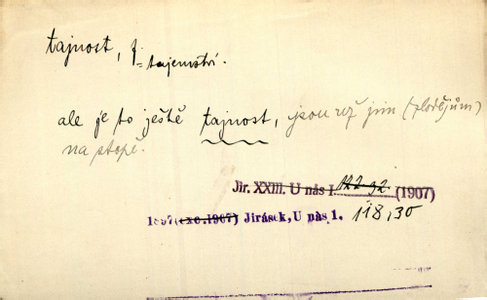 tajnost, f.
= tajemství.
ale je to ještě tajnost, jsou už jim (zlodějům)
na stopě.
Jir. XXIII. U nás I. 122.32 (1907)
1897 (exc. 1907) Jirásek, U nás 1. 118,30